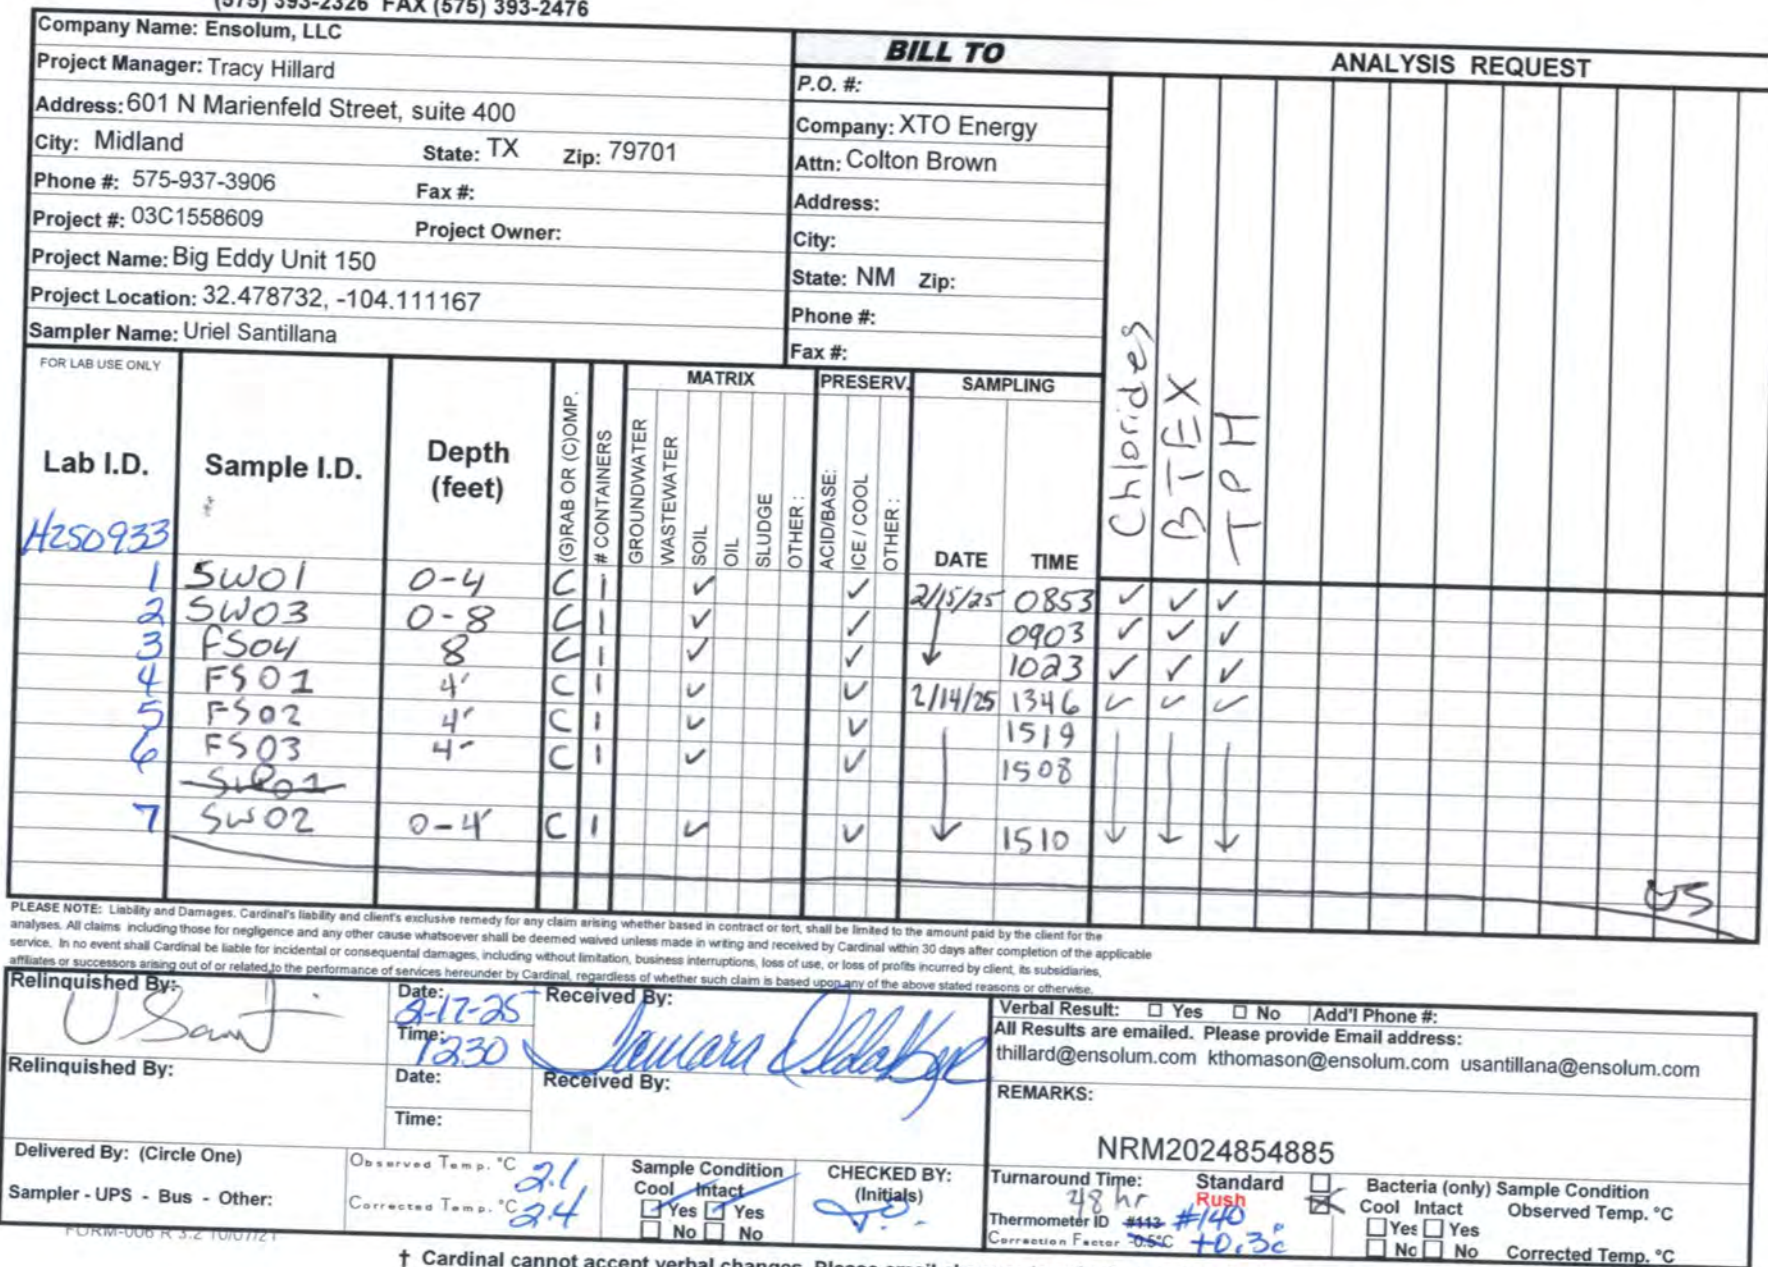 (575) 393-2326 FAX (575) 393-2476
Company Name: Ensolum, LLC
Project Manager: Tracy Hillard
Address: 601 N Marienfeld Street, suite 400
City: Midland State: TX Zip: 79701
Phone #: 575-937-3906 Fax #:
Project #: 03C1558609 Project Owner:
Project Name: Big Eddy Unit 150
Project Location: 32.478732, -104.111167
Sampler Name: Uriel Santillana
BILL TO
P.O. #:
Company: XTO Energy
Attn: Colton Brown
Address:
City:
State: NM Zip:
Phone #:
Fax #:
ANALYSIS REQUEST
FOR LAB USE ONLY
MATRIX PRESERV. SAMPLING
Lab I.D. Sample I.D. Depth (feet) (G)RAB OR (C)OMP. # CONTAINERS GROUNDWATER WASTEWATER SOIL OIL SLUDGE OTHER : ACID/BASE: ICE / COOL OTHER : DATE TIME Chlorides BTEX TPH
H250933
1 SW01 0-4 C 1 ✓ ✓ 2/15/25 0853 ✓ ✓ ✓
2 SW03 0-8 C 1 ✓ ✓ ↓ 0903 ✓ ✓ ✓
3 FS04 8 C 1 ✓ ✓ 1023 ✓ ✓ ✓
4 FS01 4' C 1 ✓ ✓ 2/14/25 1346 ✓ ✓ ✓
5 FS02 4' C 1 ✓ ✓ ↓ 1519 ↓ ↓ ↓
6 FS03 4' C 1 ✓ ✓ 1508
7 SW02 0-4' C 1 ✓ ✓ 1510
US
PLEASE NOTE: Liability and Damages. Cardinal's liability and client's exclusive remedy for any claim arising whether based in contract or tort, shall be limited to the amount paid by the client for the
analyses. All claims including those for negligence and any other cause whatsoever shall be deemed waived unless made in writing and received by Cardinal within 30 days after completion of the applicable
service. In no event shall Cardinal be liable for incidental or consequental damages, including without limitation, business interruptions, loss of use, or loss of profits incurred by client, its subsidiaries,
affiliates or successors arising out of or related to the performance of services hereunder by Cardinal, regardless of whether such claim is based upon any of the above stated reasons or otherwise.
Relinquished By: Date: 2-17-25 Received By:
Time: 1230
Relinquished By: Date: Received By:
Time:
Verbal Result: ☐ Yes ☐ No Add'l Phone #:
All Results are emailed. Please provide Email address:
thillard@ensolum.com kthomason@ensolum.com usantillana@ensolum.com
REMARKS:
NRM2024854885
Delivered By: (Circle One) Observed Temp. °C 2.1
Sampler - UPS - Bus - Other: Corrected Temp. °C 2.4
Sample Condition
Cool Intact
☑ Yes ☑ Yes
☐ No ☐ No
CHECKED BY:
(Initials)
Turnaround Time: 48 hr Standard ☐
Rush ☒
Thermometer ID #113 #140
Correction Factor -0.5°C +0.3c
Bacteria (only) Sample Condition
Cool Intact Observed Temp. °C
☐ Yes ☐ Yes
☐ No ☐ No Corrected Temp. °C
FORM-006 R 3.2 10/07/21
† Cardinal cannot accept verbal changes. Please email